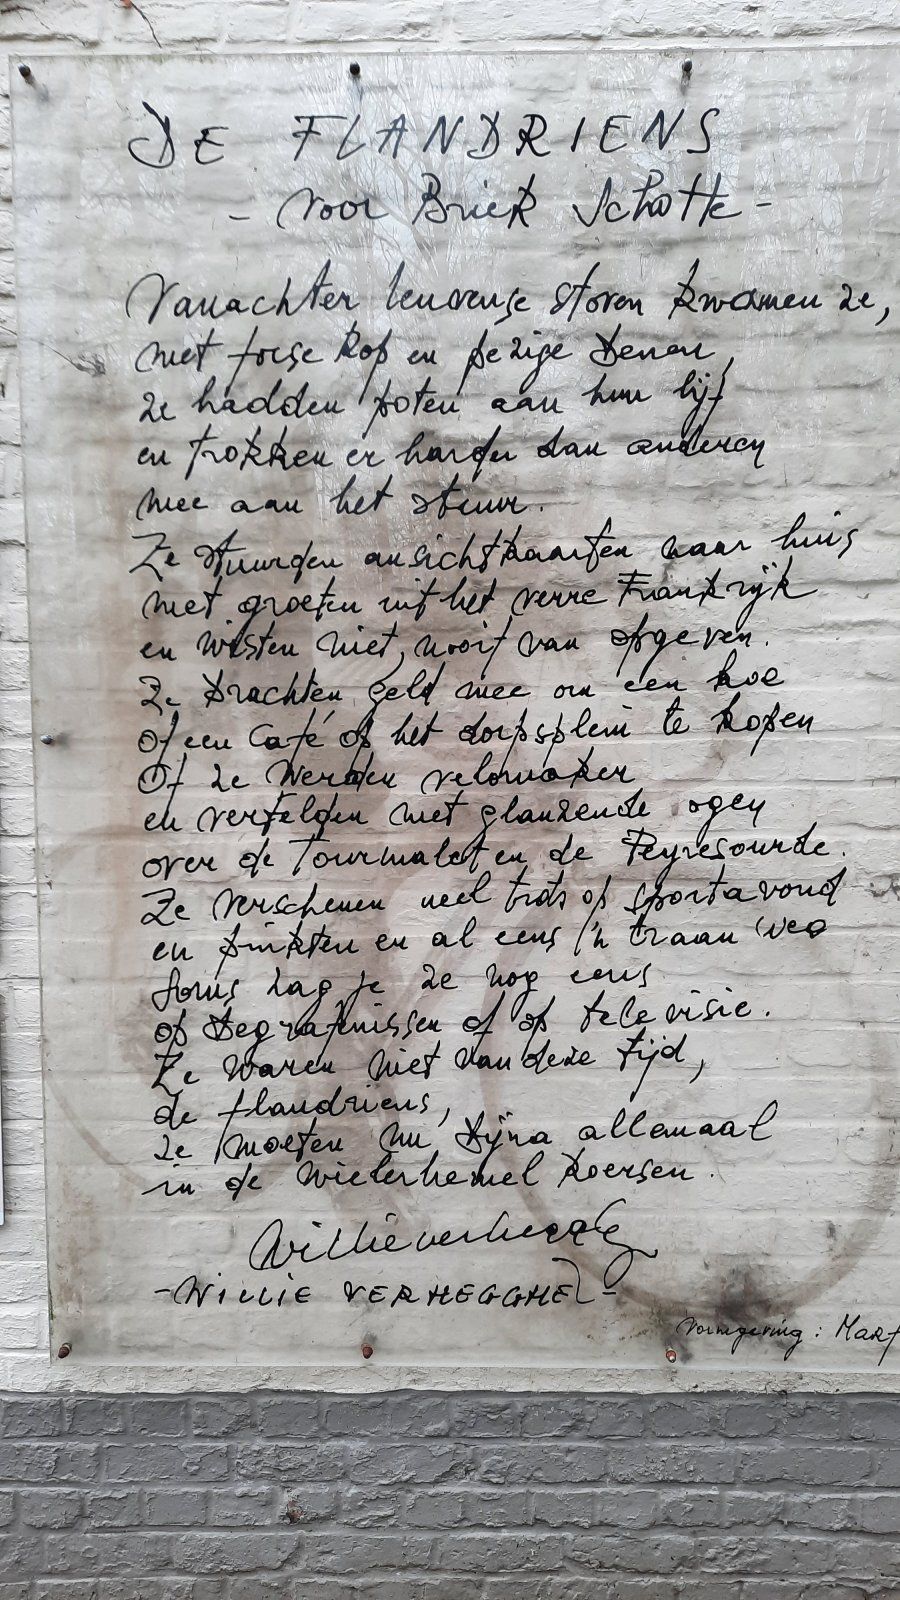 DE FLANDRIENS
- voor Briek Schotte -
Vanachter leuvense stoven kwamen ze,
met forse kop en pezige benen,
ze hadden poten aan hun lijf
en trokken er harder dan anderen
mee aan het stuur.
Ze stuurden ansichtkaarten naar huis
met groeten uit het verre Frankrijk
en wisten niet, nooit van opgeven.
Ze brachten geld mee om een koe
of een café op het dorpsplein te kopen
Of ze werden velomaker
en vertelden met glanzende ogen
over de Tourmalet en de Peyresourde.
Ze verschenen veel trots op sportavond
en pinkten er al eens 'n traan weg
Soms zag je ze nog eens
op begrafenissen of op televisie.
Ze waren niet van deze tijd,
de flandriens,
ze moeten nu bijna allemaal
in de wielerhemel koersen.
Willie Verhegghe
- WILLIE VERHEGGHE -
Vormgeving : Mart